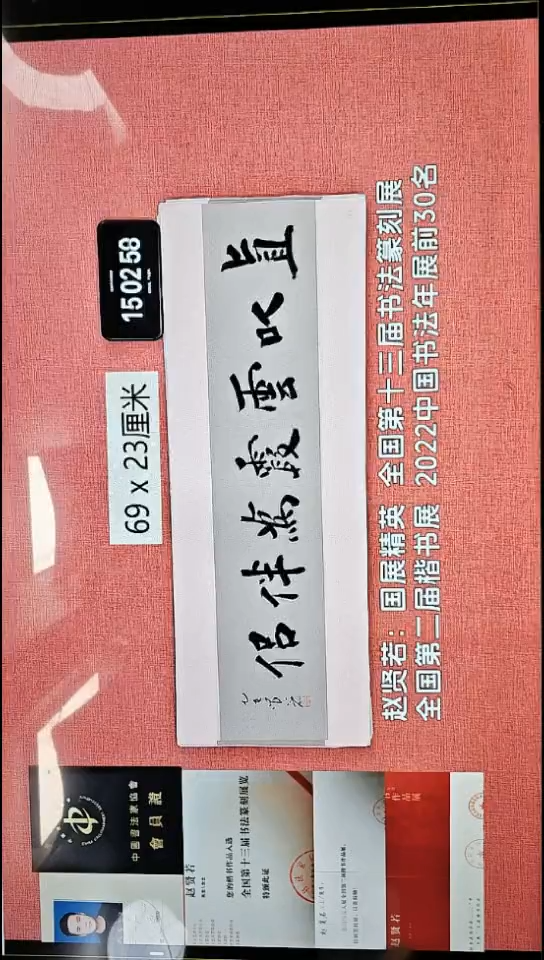 150258
69 x 23厘米
直以雲霞為伴侶
赵贤若：国展精英 全国第十三届书法篆刻展
全国第二届楷书展 2022中国书法年展前30名
中國書法家協會
會員證
赵贤若
您的楷书作品入选
全国第十三届书法篆刻展览
特颁此证
赵贤若